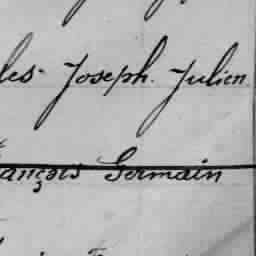 les Joseph Julien
ançois Germain